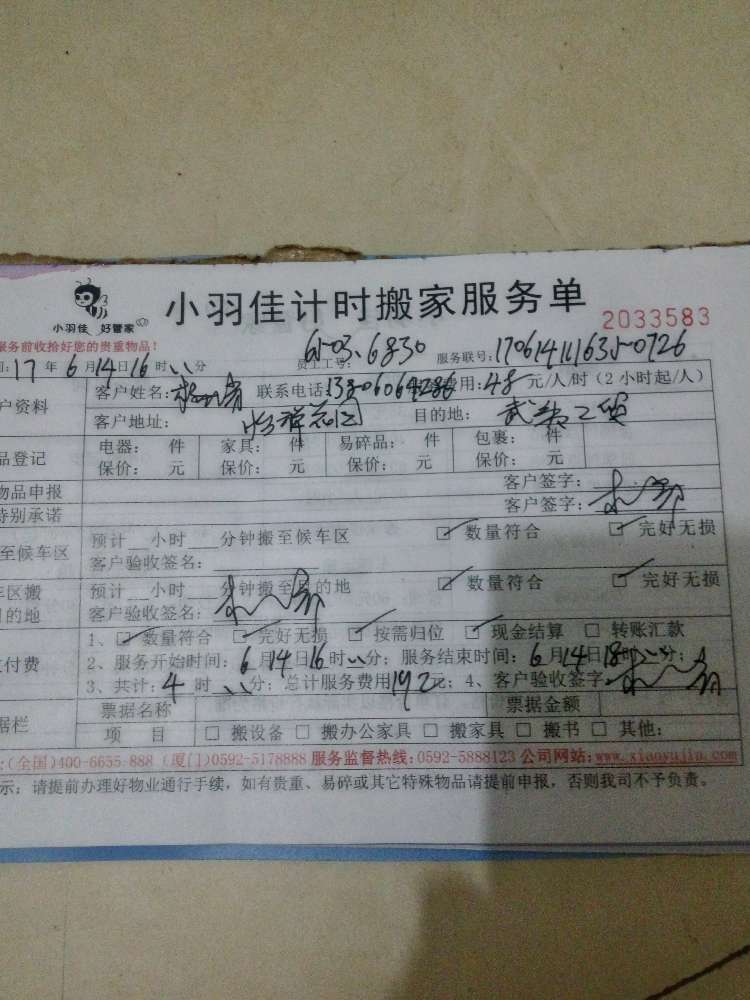 小羽佳计时搬家服务单
小羽佳 好管家
2033583
服务前收拾好您的贵重物品!
17年6月14日16时 分 员工工号: 61-03.6830 服务联号:
户资料 客户姓名: 联系电话: 费用:48元/人/时(2小时起/人)
客户地址: 怡祥花园 目的地:
品登记 电器: 件 家具: 件 易碎品: 件 包裹: 件
保价: 元 保价: 元 保价: 元 保价: 元
物品申报 客户签字:
特别承诺 客户签字:
至候车区 预计__小时___分钟搬至候车区 ☑ 数量符合 ☑ 完好无损
客户验收签名:
车区搬 预计__小时___分钟搬至目的地 ☑ 数量符合 ☑ 完好无损
的地 客户验收签名:
付费 1、☑ 数量符合 ☑ 完好无损 ☑ 按需归位 ☑ 现金结算 □ 转账汇款
2、服务开始时间:6月14日16时 分;服务结束时间:6月14日18时 分;
3、共计:4时 分;总计服务费用192元;4、客户验收签字:
据栏 票据名称 票据金额
项 目 □ 搬设备 □ 搬办公家具 □ 搬家具 □ 搬书 □ 其他:
:(全国)400-6655-888 (厦门)0592-5178888 服务监督热线:0592-5888123 公司网站:www.xiaoyujia.com
示:请提前办理好物业通行手续,如有贵重、易碎或其它特殊物品请提前申报,否则我司不予负责。